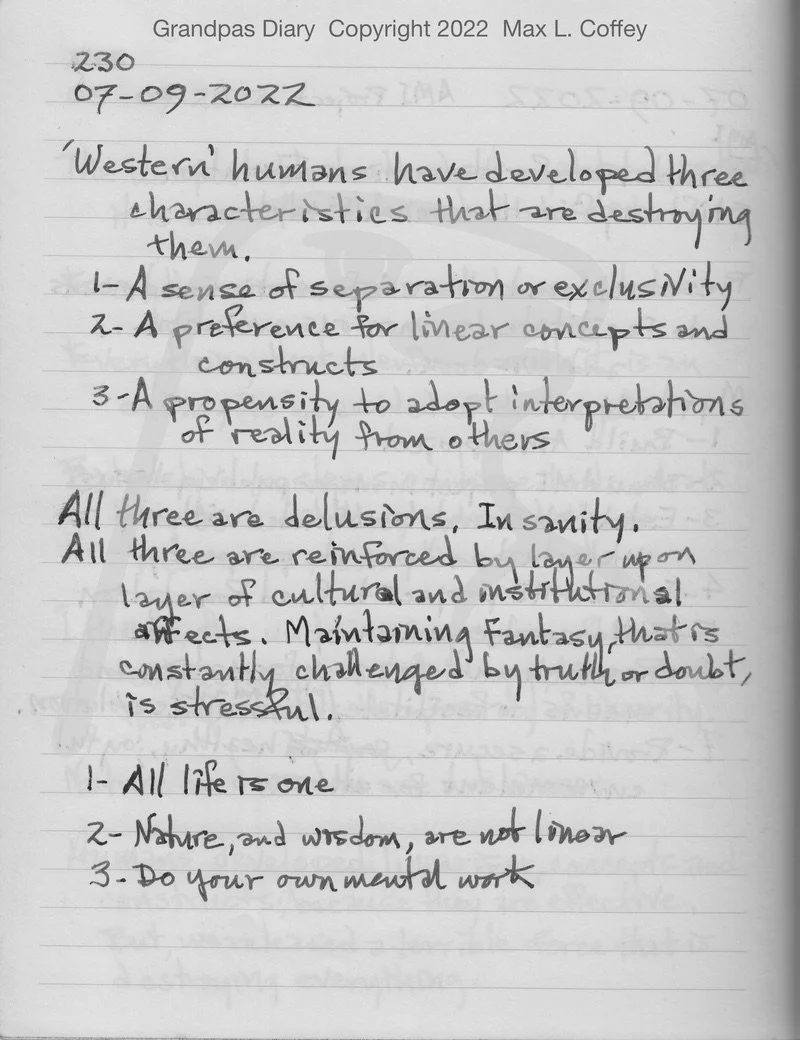 Grandpas Diary Copyright 2022 Max L. Coffey
230
07-09-2022
'Western' humans have developed three
characteristics that are destroying
them.
1- A sense of separation or exclusivity
2- A preference for linear concepts and
constructs
3-A propensity to adopt interpretations
of reality from others
All three are delusions. Insanity.
All three are reinforced by layer upon
layer of cultural and institutional
affects. Maintaining fantasy, that is
constantly challenged by truth or doubt,
is stressful.
1- All life is one
2- Nature, and wisdom, are not linear
3- Do your own mental work